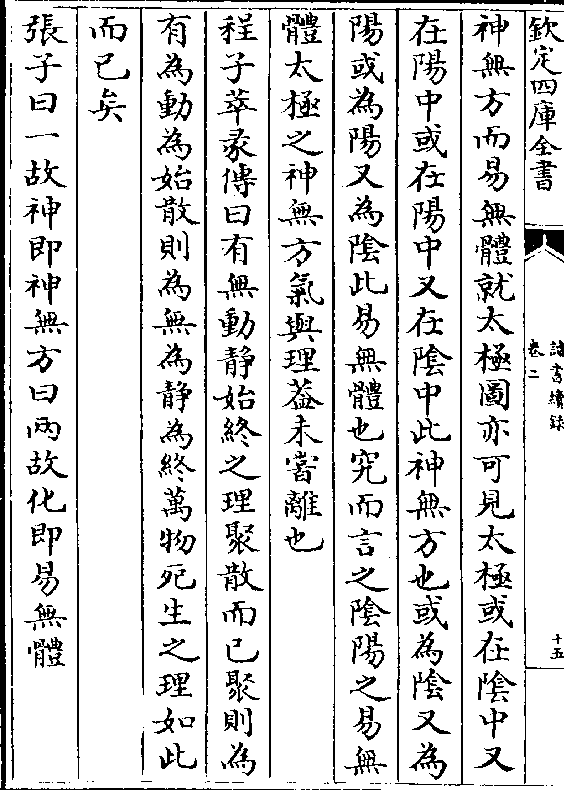 欽定四庫全書
讀書續錄
卷二
十五
神無方而易無體就太極圖亦可見太極或在陰中又
在陽中或在陽中又在陰中此神無方也或為陰又為
陽或為陽又為陰此易無體也究而言之陰陽之易無
體太極之神無方氣與理葢未嘗離也
程子萃彖傳曰有無動靜始終之理聚散而已聚則為
有為動為始散則為無為靜為終萬物死生之理如此
而已矣
張子曰一故神即神無方曰兩故化即易無體